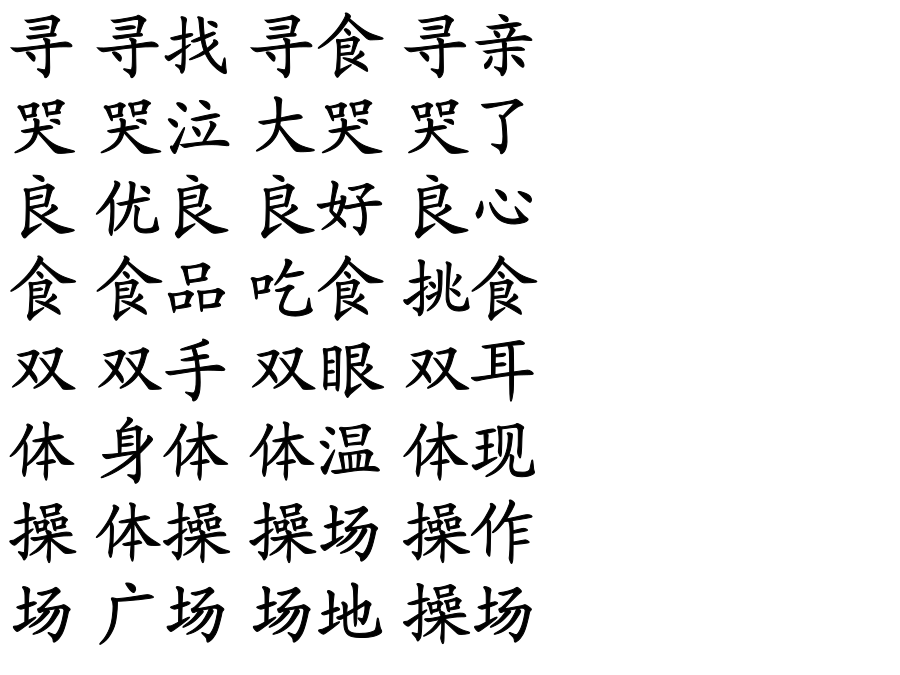 寻 寻找 寻食 寻亲
哭 哭泣 大哭 哭了
良 优良 良好 良心
食 食品 吃食 挑食
双 双手 双眼 双耳
体 身体 体温 体现
操 体操 操场 操作
场 广场 场地 操场